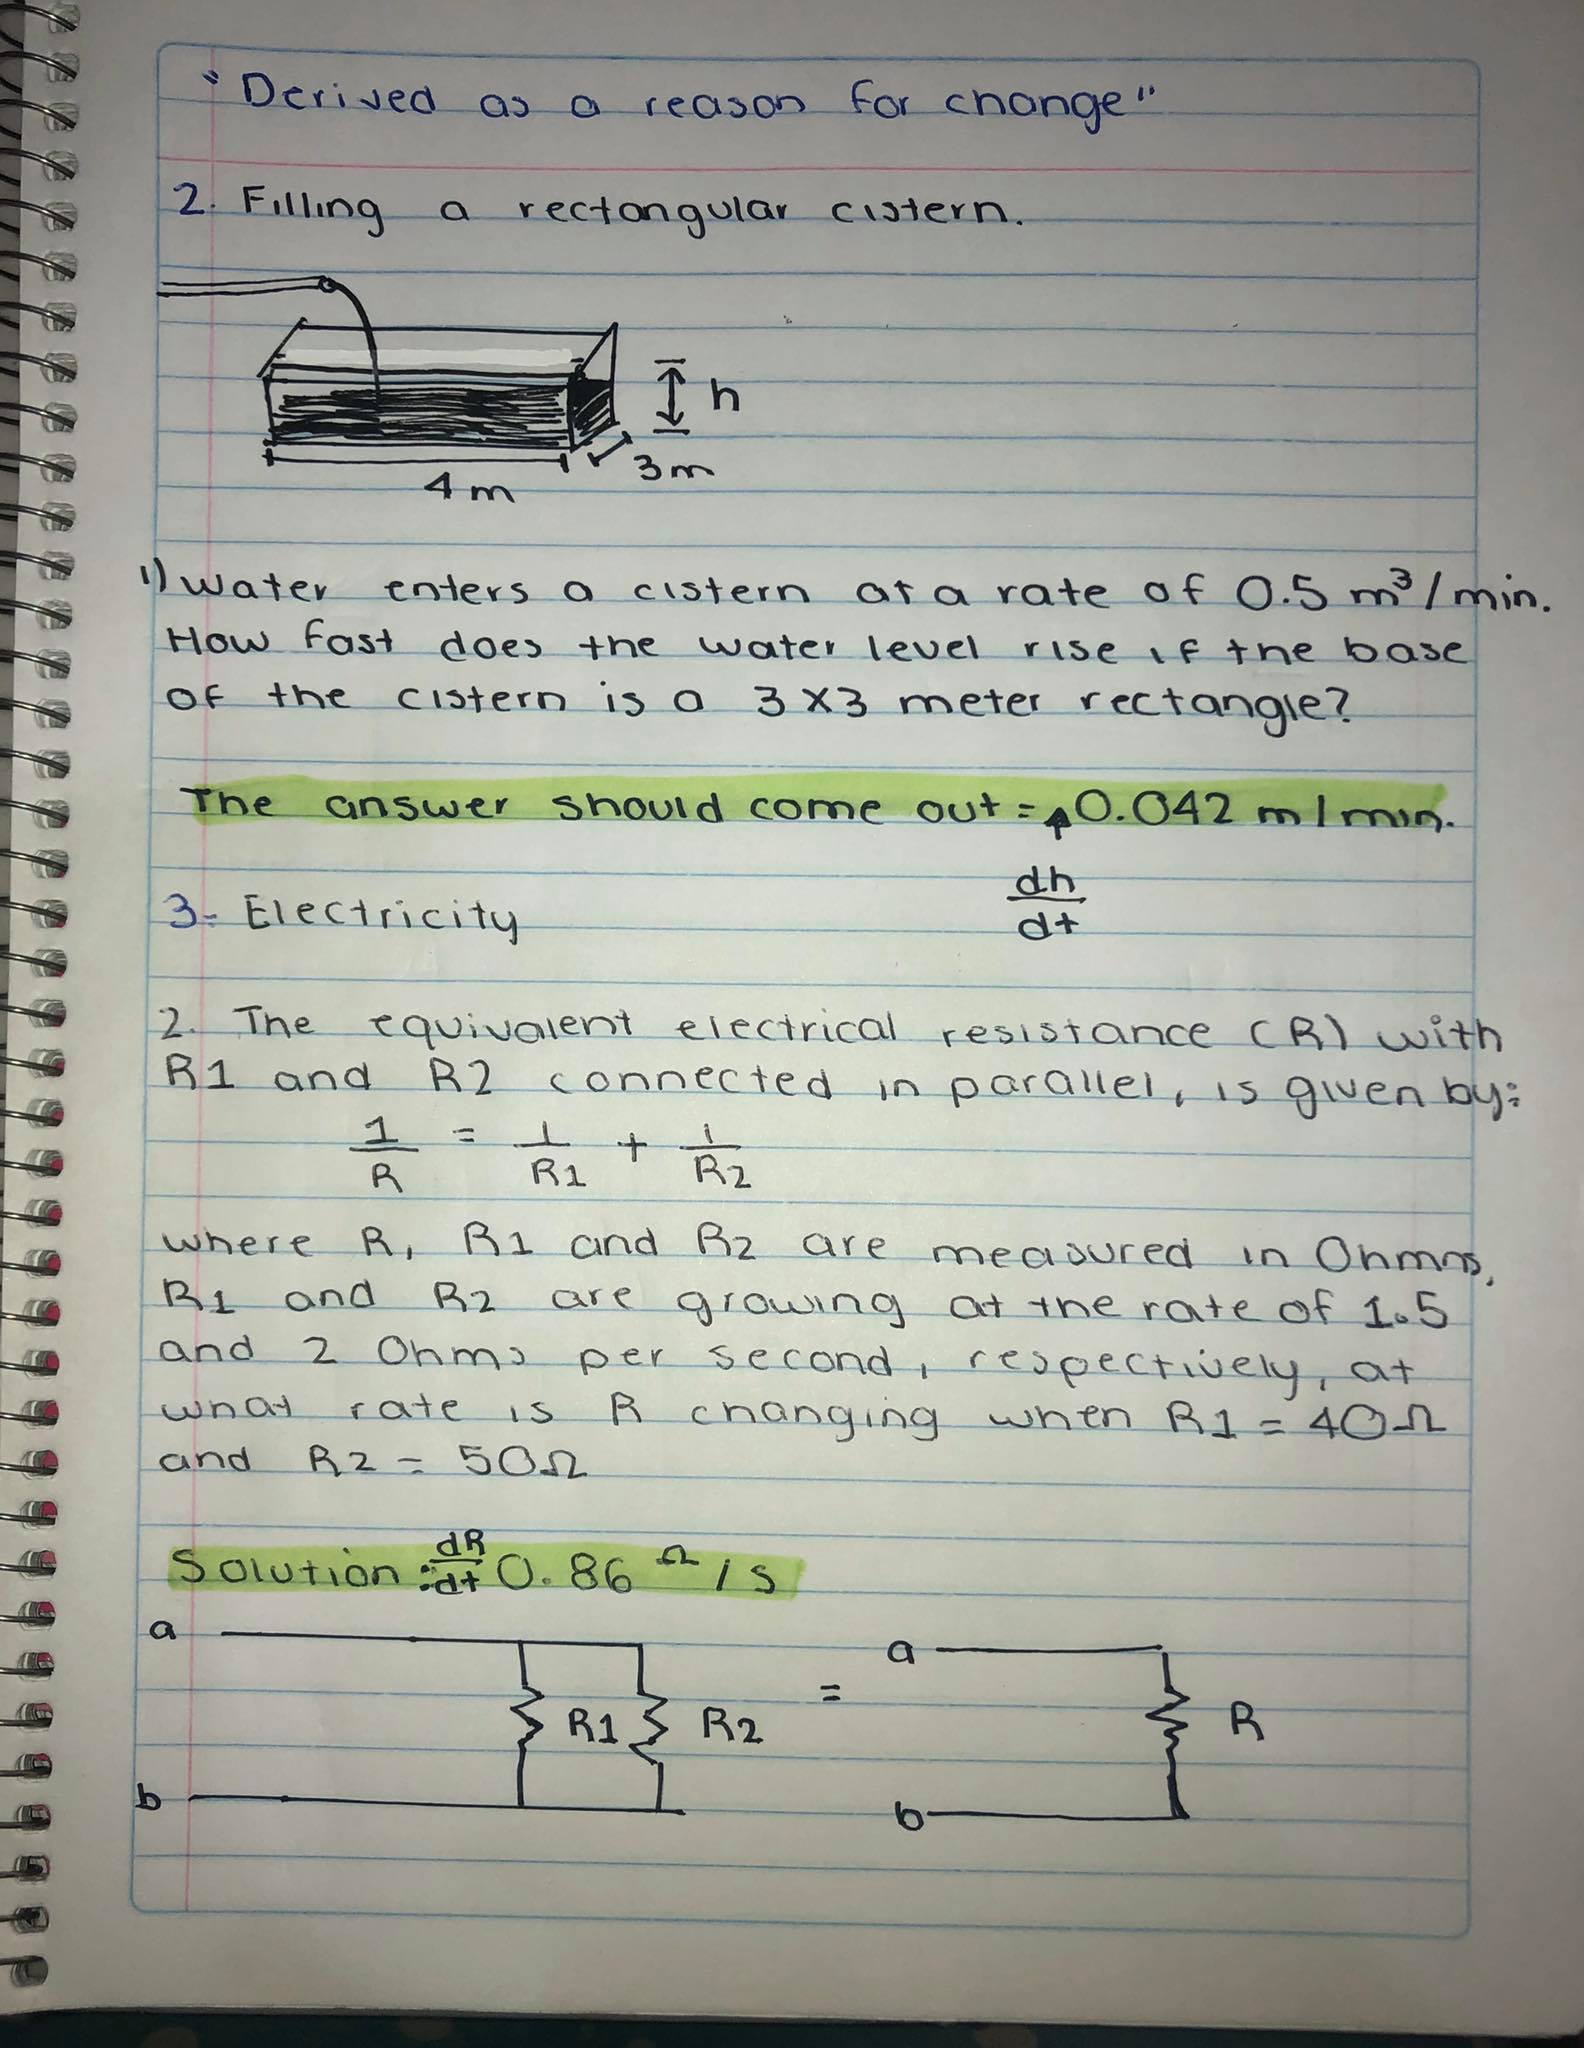 "Derived as a reason for change"
2. Filling a rectangular cistern.
h
3m
4m
1) water enters a cistern at a rate of 0.5 m³/min.
How fast does the water level rise if the base
of the cistern is a 3x3 meter rectangle?
The answer should come out = 0.042 m/min.
dh
dt
3- Electricity
2. The equivalent electrical resistance (R) with
R1 and R2 connected in parallel, is given by:
1/R = 1/R1 + 1/R2
where R, R1 and R2 are measured in Ohmns,
R1 and R2 are growing at the rate of 1.5
and 2 Ohms per second, respectively, at
what rate is R changing when R1 = 40Ω
and R2 = 50Ω
Solution: dR/dt 0.86 Ω/s
a
a
R1
R2
=
R
b
b